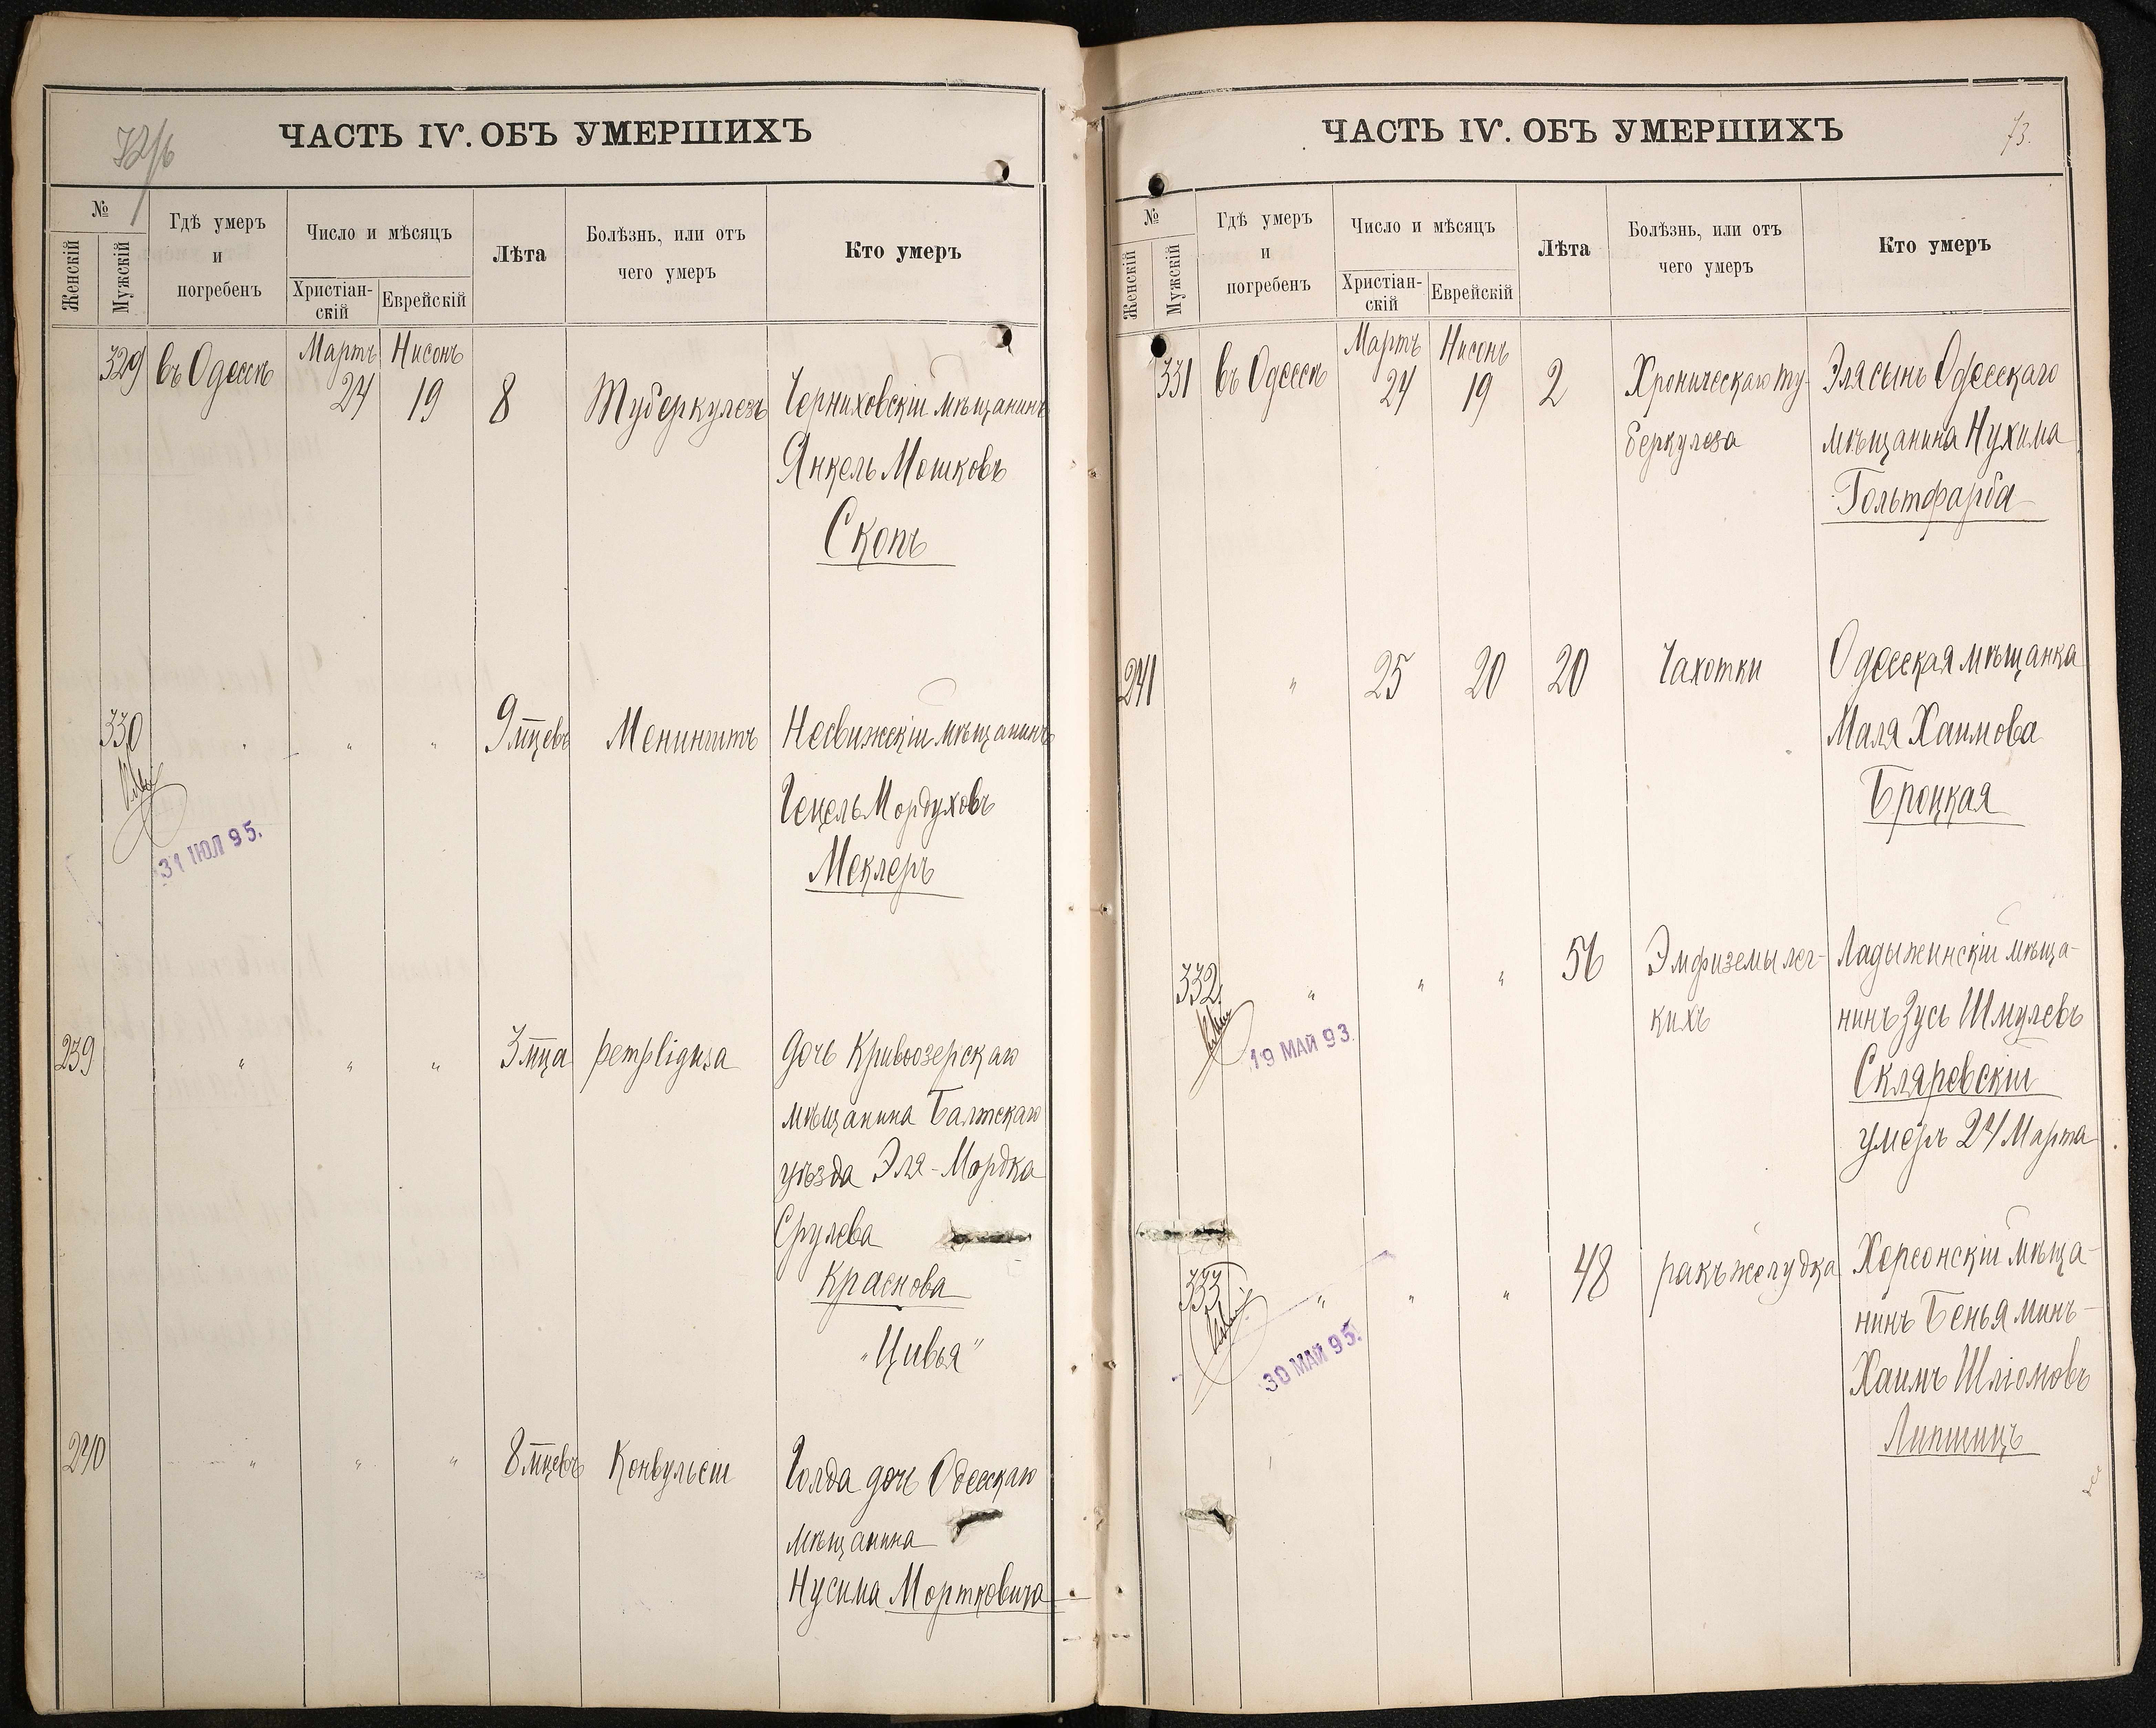 72/б
ЧАСТЬ IV. ОБЪ УМЕРШИХЪ
№
Женскій
Мужскій
Гдѣ умеръ
и
погребенъ
Число и мѣсяцъ
Христіан-
скій
Еврейскій
Лѣта
Болѣзнь, или отъ
чего умеръ
Кто умеръ
Мартъ Нисонъ
329 въ Одессѣ 24 19 8 Туберкулезъ Черниховскій мѣщанинъ
Янкель Мошковъ
Скопъ
330 " " " 9 мцевъ Менингитъ Несвижскій мѣщанинъ
Гецель Мордуховъ
Меклеръ
31 ІЮЛ 95.
239 " " " 3 мца pempligusa дочь Кривоозерскаго
мѣщанина Балтскаго
уѣзда Эля-Мордка
Срулева
Краснова
"Цивья"
240 " " " 8 мцевъ Конвульсіи Голда дочь Одесскаго
мѣщанина
Нусима Мортковича
73.
ЧАСТЬ IV. ОБЪ УМЕРШИХЪ
№
Женскій
Мужскій
Гдѣ умеръ
и
погребенъ
Число и мѣсяцъ
Христіан-
скій
Еврейскій
Лѣта
Болѣзнь, или отъ
чего умеръ
Кто умеръ
Мартъ Нисонъ
331 въ Одессѣ 24 19 2 Хроническаго ту- Эля сынъ Одесскаго
беркулеза мѣщанина Нухима
Гольтфарба
241 " 25 20 20 Чахотки Одесская мѣщанка
Маля Хаимова
Броцкая
332 " " " 56 Эмфиземы лег- Ладыжинскій мѣща-
кихъ нинъ Зусь Шмулевъ
19 МАЙ 93.
Скляревскій
умеръ 24 Марта
333 " " " 48 ракъ желудка Херсонскій мѣща-
нинъ Беньяминъ-
30 МАЙ 95.
Хаимъ Шліомовъ
Липшицъ